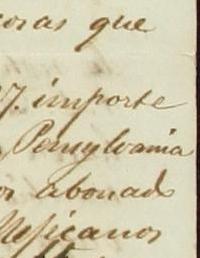 cosas que
7. importe
Pensylvania
os abonado
Mejicanos